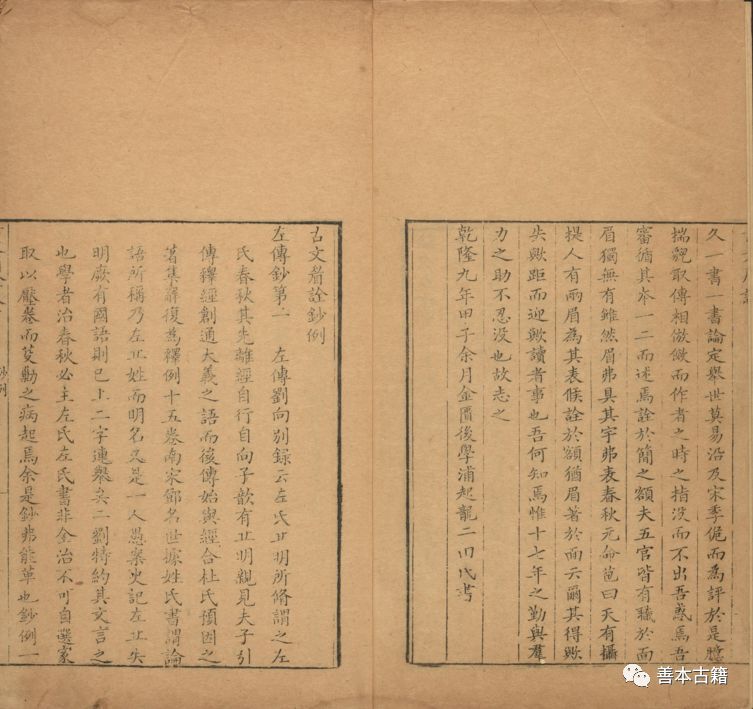 久一書一書論定舉世莫易沿及宋季佹而為評於是臆
揣覬取傳相倣傚而作者之時之指沒而不出吾慼焉吾
審循其夲一二而述焉詮於簡之額夫五官皆有職於面
眉獨無有雖然眉弗具其宇弗表春秋元命苞曰天有攝
提人有兩眉為其表候詮於額猶眉著於面云爾其得歟
失歟距而迎歟讀者事也吾何知焉惟十七年之勤與羣
力之助不忍沒也故志之
乾隆九年甲子余月金匱後學浦起龍二田氏書
古文眉詮鈔例
左傳鈔第一 左傳劉向別録云左氏丘明所脩謂之左
氏春秋其先離經自行自向子歆有丘明親見夫子引
傳釋經創通大義之語而後傳始與經合杜氏預因之
著集解復為釋例十五卷南宋鄧名世據姓氏書謂論
語所稱乃左丘姓而明名又是一人愚案史記左丘失
明厥有國語則已上二字連舉矣二劉特約其文言之
也學者治春秋必主左氏左氏書非全治不可自選家
取以壓卷而芟勦之病起焉余是鈔弗能革也鈔例一
鈔例
善本古籍